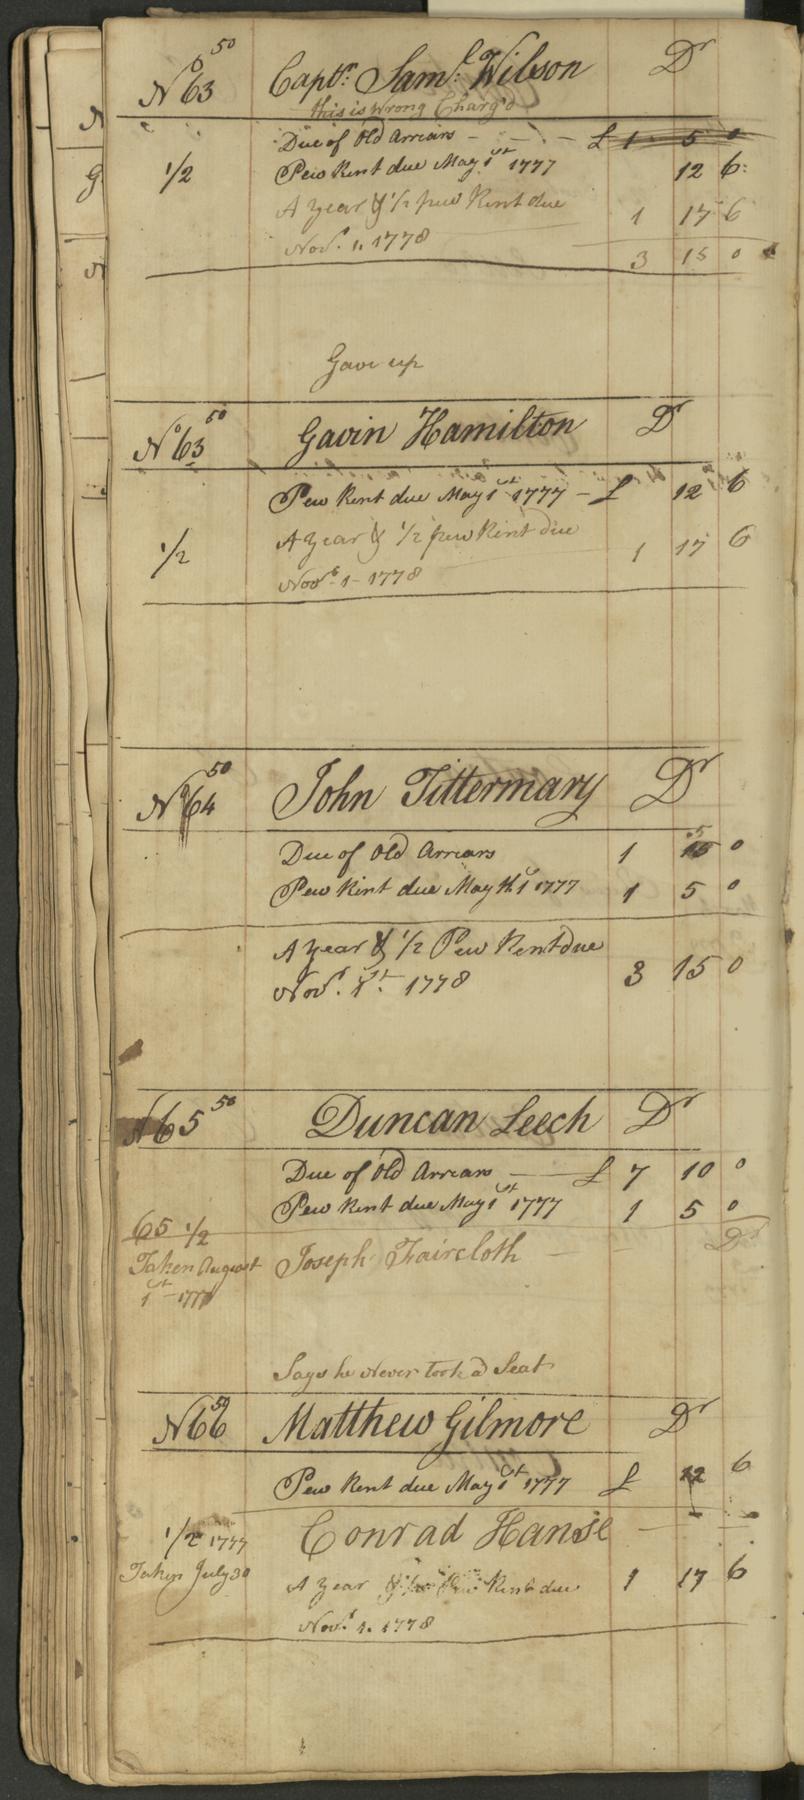 No 63 50 Captn. Saml. Wilson Dr
this is wrong Charg'd
Due of Old Arrears - - - £ 1 5 0
1/2 Pew Rent due May 1st 1777 12 6
A year & 1/2 pew Rent due 1 17 6
Novr. 1. 1778
3 15 0
Gave up
No 63 50 Gavin Hamilton Dr
Pew Rent due May 1st 1777 - £ 12 6
1/2 A year & 1/2 pew Rent due 1 17 6
Novr. 1 - 1778
No 64 50 John Tittermary Dr
Due of Old Arrears 1 5 0
Pew Rent due May 1st 1777 1 5 0
A year & 1/2 Pew Rent due 3 15 0
Novr. 1st. 1778
No 65 50 Duncan Leech Dr
Due of Old Arrears £ 7 10 0
Pew Rent due May 1st 1777 1 5 0
65 1/2 Dr
Taken August Joseph Faircloth
1st - 177
Says he Never took a Seat
No 66 50 Matthew Gilmore Dr
Pew Rent due May 1st 1777 £ 12 6
1/2 1777 Conrad Hanse
Taken July 30 A year & 1/2 Pew Rent due 1 17 6
Novr. 1. 1778